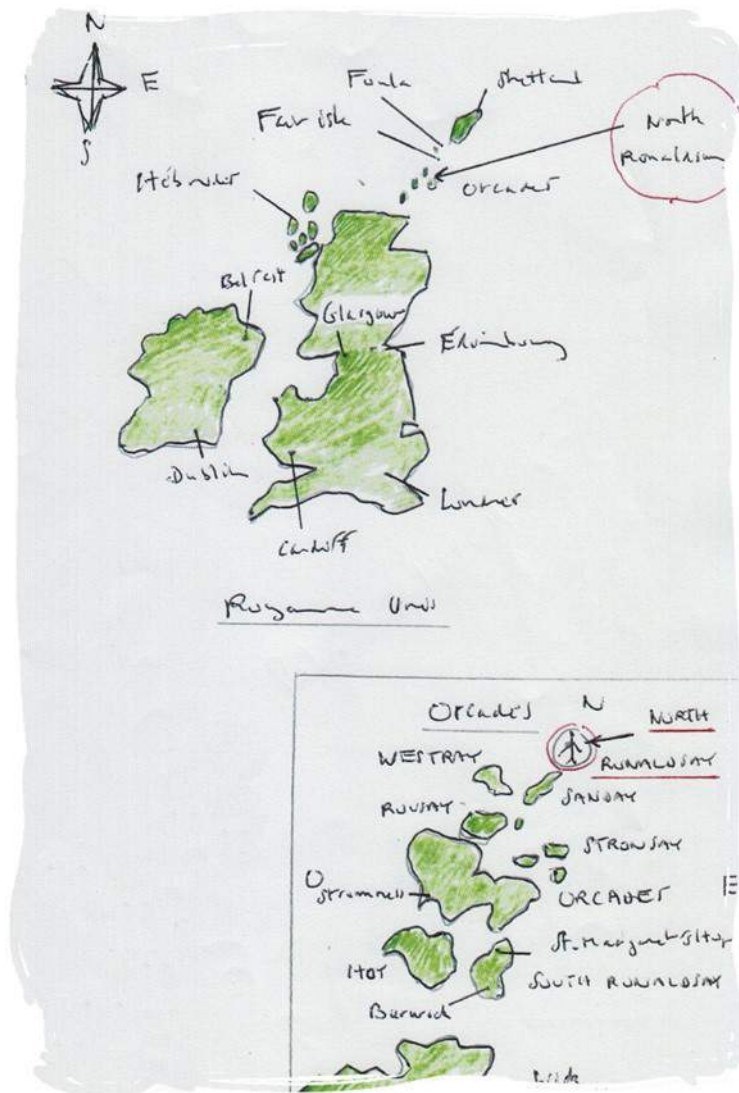 N
E
S
Foula
Shetland
Fair isle
North
Ronaldsay
Hébrides
Orcades
Belfast
Glasgow
Édimbourg
Dublin
Londres
Cardiff
Royaume Uni
Orcades
N
NORTH
RONALDSAY
WESTRAY
SANDAY
ROUSAY
STRONSAY
O
Stromness
ORCADES
E
St. Margaret's Hope
HOY
SOUTH RONALDSAY
Burwick